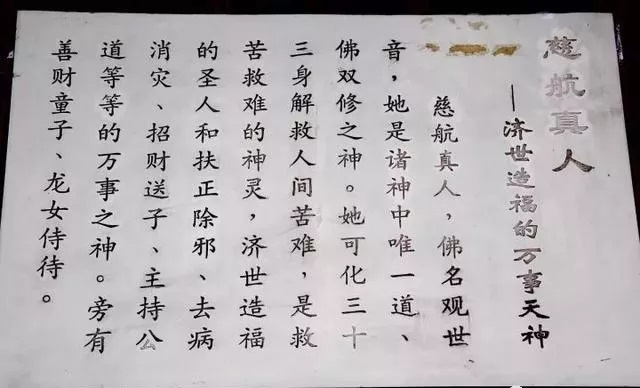 慈航真人
—济世造福的万事天神
慈航真人，佛名观世
音，她是诸神中唯一道、
佛双修之神。她可化三十
三身解救人间苦难，是救
苦救难的神灵，济世造福
的圣人和扶正除邪、去病
消灾、招财送子、主持公
道等等的万事之神。旁有
善财童子、龙女侍待。